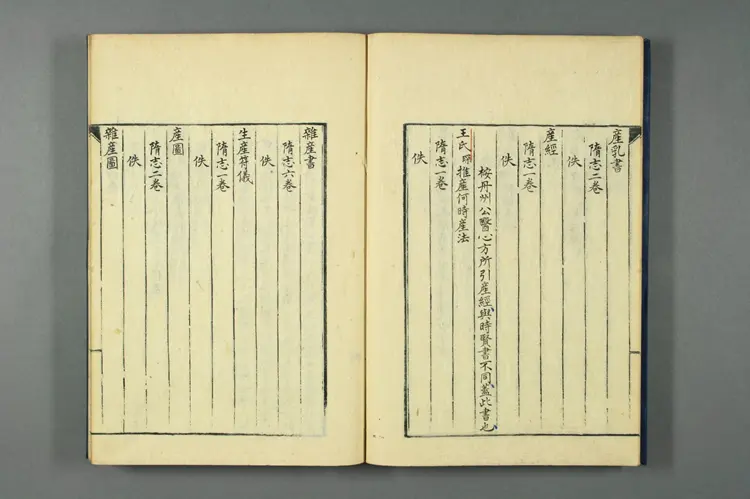 産乳書
隋志二卷
佚
産經
隋志一卷
佚
按丹州公醫心方所引産經與時賢書不同蓋此書也
王氏推産何時産法
隋志一卷
佚
雜産書
隋志六卷
佚
生産符儀
隋志一卷
佚
産圖
隋志二卷
佚
雜産圖